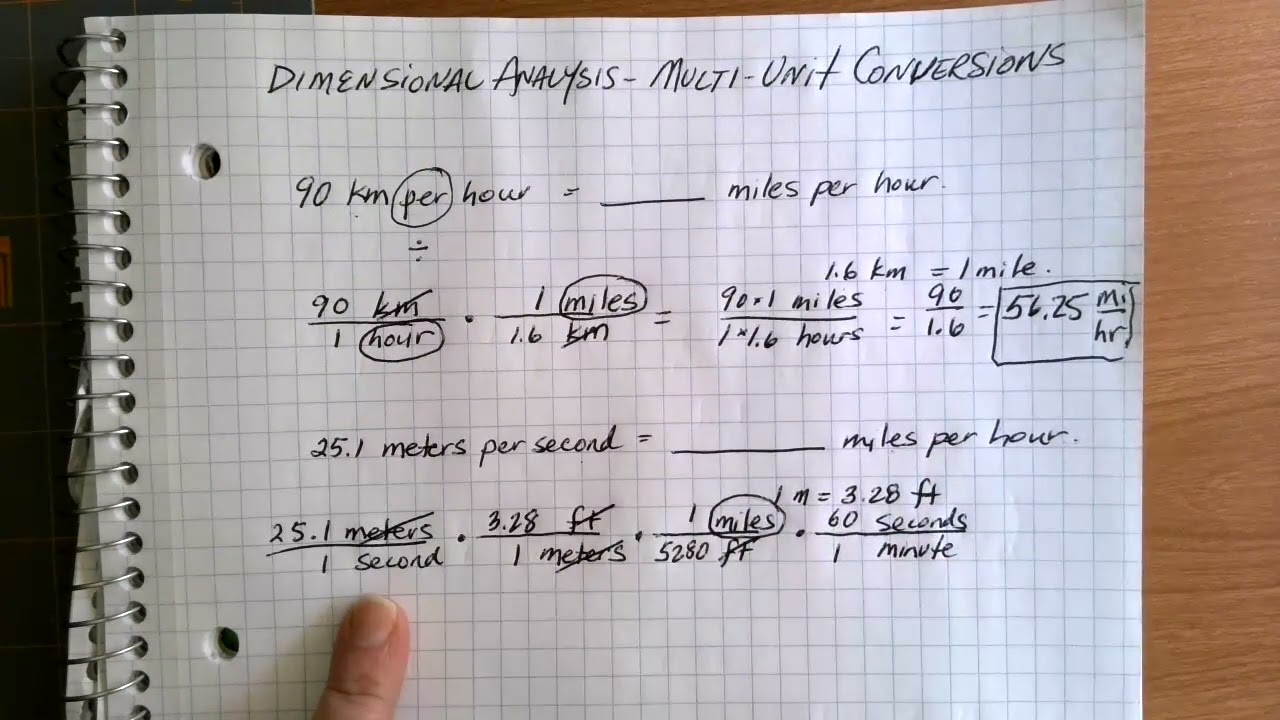 DIMENSIONAL ANALYSIS - MULTI-UNIT CONVERSIONS
90 km per hour = ______ miles per hour.
÷
1.6 km = 1 mile.
90 km / 1 hour · 1 miles / 1.6 km = 90·1 miles / 1·1.6 hours = 90 / 1.6 = 56.25 mi / hr
25.1 meters per second = ______ miles per hour.
1 m = 3.28 ft
25.1 meters / 1 second · 3.28 ft / 1 meters · 1 miles / 5280 ft · 60 seconds / 1 minute